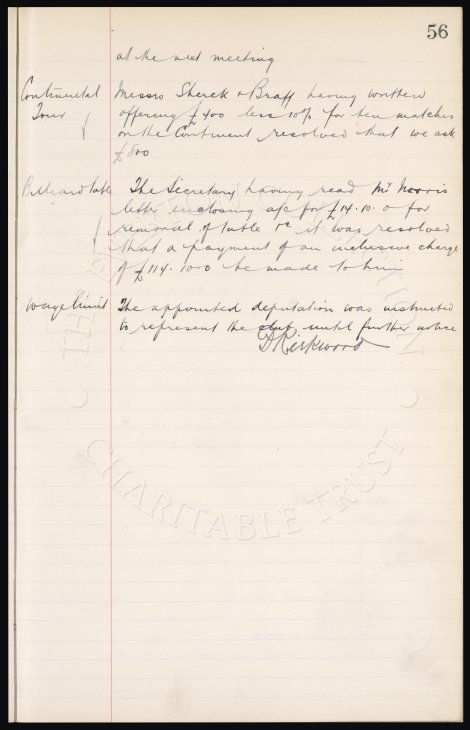 56
at the next meeting
Continental Tour
Messrs Sherek & Braff having written
offering £400 less 10% for ten matches
on the Continent resolved that we ask
£800
Billiard Table
The Secretary having read Mr Norris
letter enclosing a/c for £14.10.0 for
removal of table rc it was resolved
that a payment of an inclusive charge
of £114.10.0 be made to him
Wage limit
The appointed deputation was instructed
to represent the club until further notice
D Kirkwood
THE
CHARITABLE TRUST